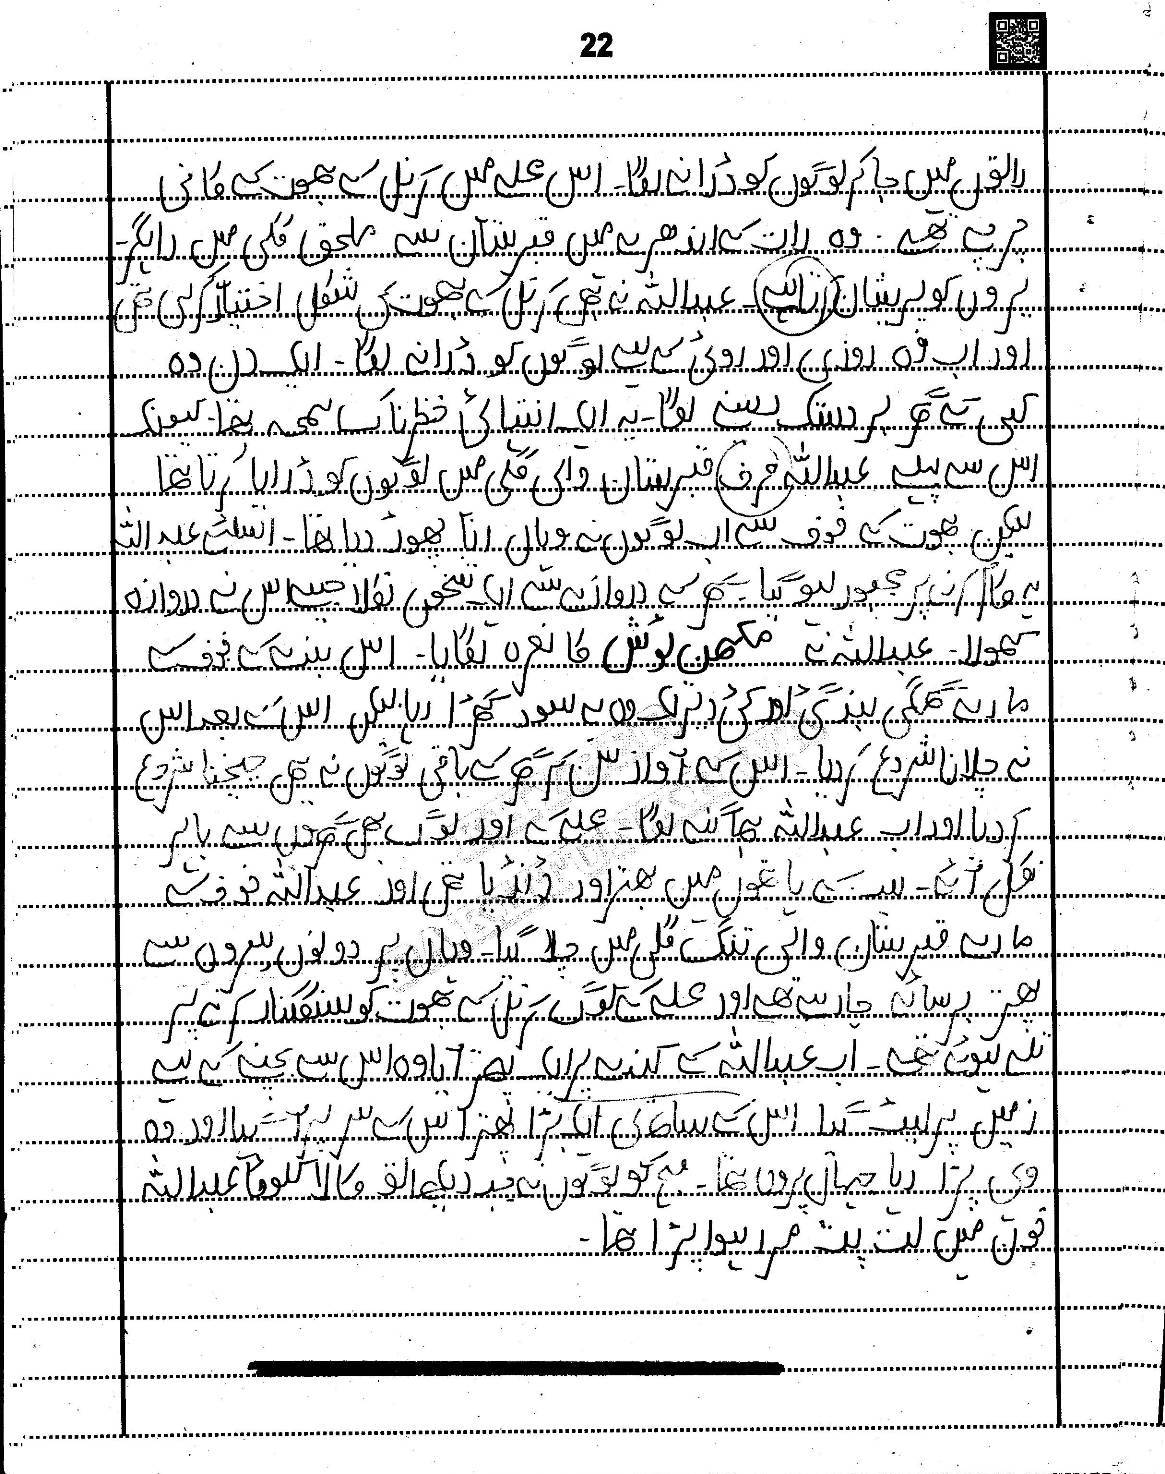 22
راتوں میں جا کر لوگوں کو ڈرانے لگا۔ اس محلے میں کرنل کے بھوت کے کافی
چرچے تھے۔ وہ رات کے اندھیرے میں قبرستان سے ملحق گلی میں راہگیر-
یروں کو پریشان کرتا ہے۔ عبداللہ نے بھی کرنل کے بھوت کی شکل اختیار کر لی تھی
اور اب وہ روزی اور روٹی کے لیے لوگوں کو ڈرانے لگا۔ ایک دن وہ
کسی کے گھر پر دستک دینے لگا۔ یہ ایک انتہائی خطرناک سمجھ تھا۔ کیونکہ
اس سے پہلے عبداللہ صرف قبرستان والی گلی میں لوگوں کو ڈرایا کرتا تھا
لیکن بھوت کے خوف سے اب لوگوں نے وہاں آنا چھوڑ دیا تھا۔ اسلئے عبداللہ
یہ کام کرنے پر مجبور ہو گیا۔ گھر کے دروازے سے ایک شخص نکلا جیسے اس نے دروازہ
کھولا۔ عبداللہ نے مکھن توش کا نعرہ لگایا۔ اس بندے کے خوف کے
مارے گھگی بندھ گئی اور کئی دیر تک وہ بے سود کھڑا رہا لیکن اس کے بعد اس
نے چلانا شروع کر دیا۔ اس کے آواز سن کر گھر کے باقی لوگوں نے بھی چیخنا شروع
کر دیا اور اب عبداللہ بھاگنے لگا۔ محلے کے اور لوگ بھی گھروں سے باہر
نکل آئے۔ سب کے ہاتھوں میں پتھر اور ڈنڈے تھے اور عبداللہ خوف کے
مارے قبرستان والی تنگ گلی میں چلا گیا۔ وہاں پر دونوں سروں سے
پتھر برسائے جا رہے تھے اور محلے کے لوگ کرنل کے بھوت کو سنگسار کرنے پر
تلے ہوئے تھے۔ اب عبداللہ کے کندھے پر ایک پتھر آیا وہ اس سے بچنے کے لیے
زمین پر لیٹ گیا اس کے ساتھ ہی ایک بڑا پتھر اس کے سر پر آ لگا اور وہ
وہی پڑا رہا جہاں پر وہ تھا۔ صبح کو لوگوں نے جب دیکھا تو کالا کلوٹا عبداللہ
خون میں لت پت مرا ہوا پڑا تھا۔